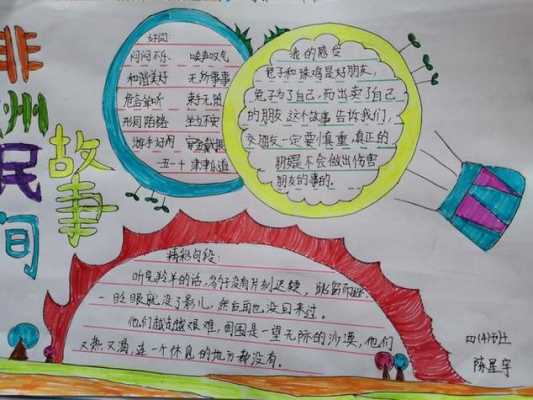 非洲民间故事
好词:
闷闷不乐 唉声叹气
和谐美好 无所事事
危言耸听 束手无策
形同陌路 坐立不安
游手好闲
一五一十 津津乐道
我的感受
兔子和珠鸡是好朋友,
兔子为了自己,而出卖了自己
的朋友 这个故事 告诉我们,
交朋友一定要慎重,真正的
朋友是不会做出伤害
朋友的事的。
精彩句段:
听完羚羊的话,豹子没有片刻迟疑,
一眨眼就没了影儿,来自也没回来过。
他们越走越艰难,周围是一望无际的沙漠,他们
又热又渴,连一个休息的地方都没有。
四(4)班
陈星宇